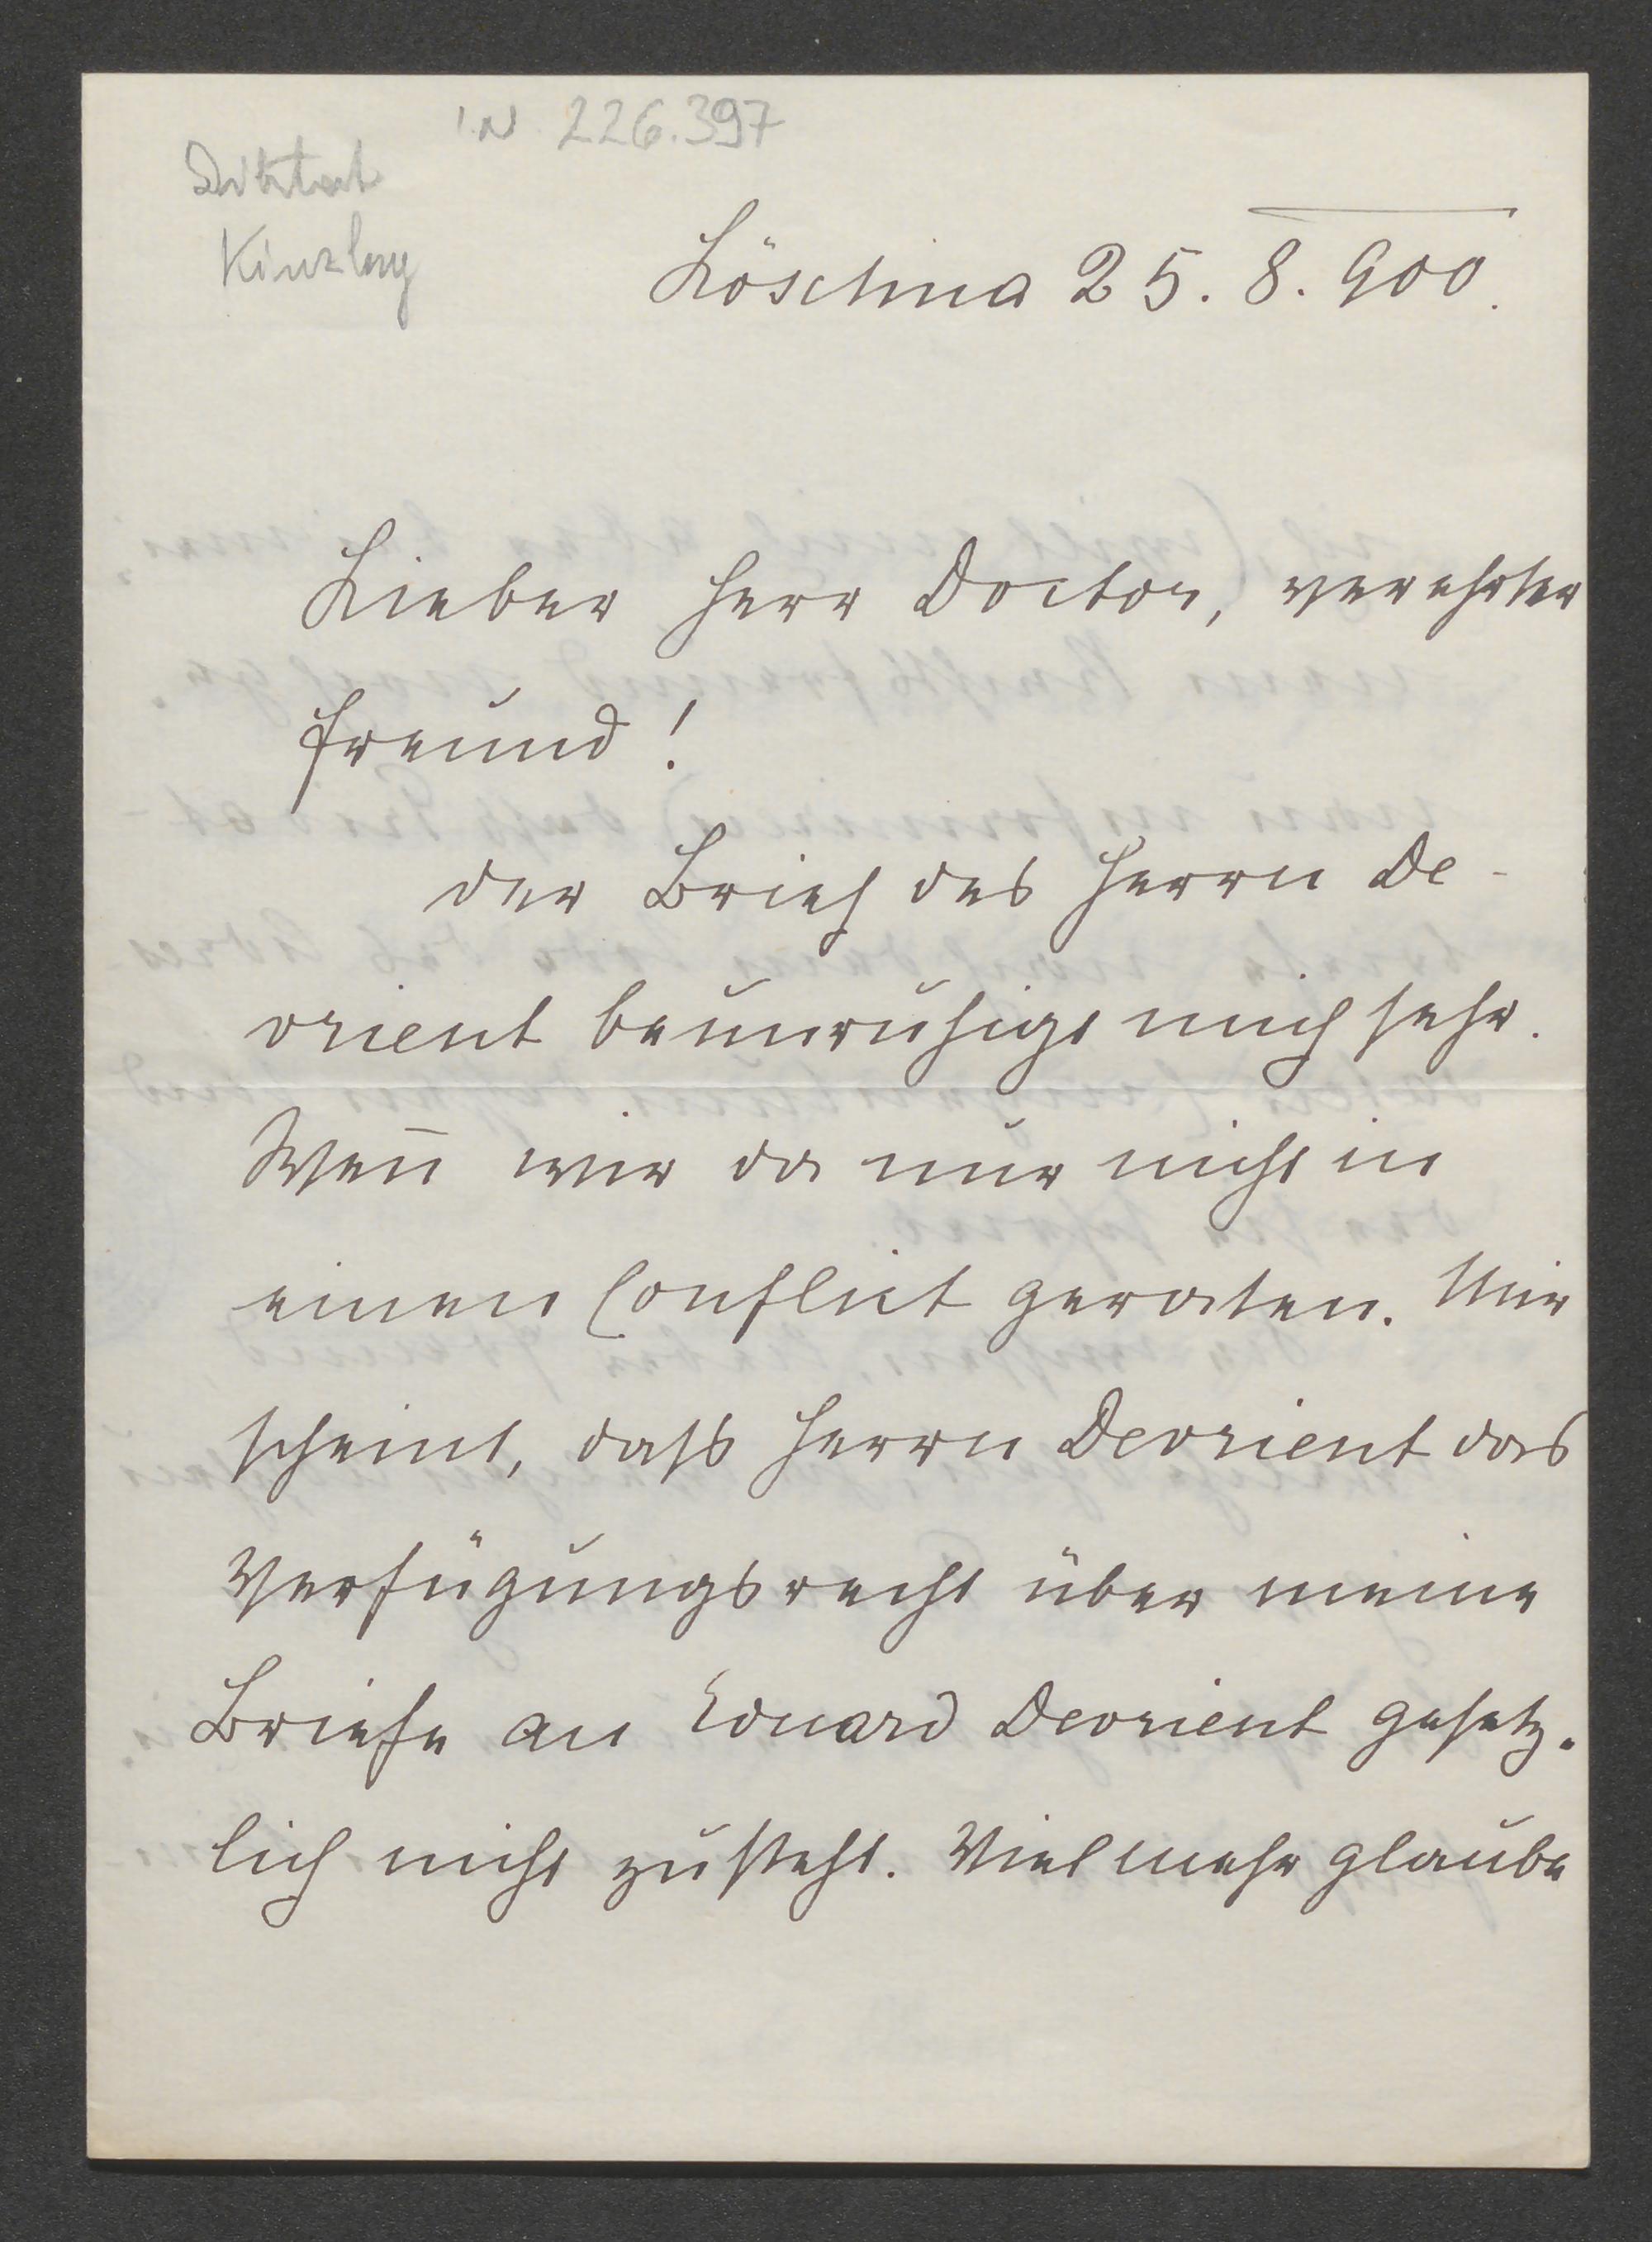 I.N. 226.397
Diktat
Kinzberg
Löschna 25. 8. 900.
Lieber Herr Doctor, verehrter
Freund!
der Brief des Herrn De-
vrient beunruhigt mich sehr.
Wen̄ wir da nur nicht in
einen Conflict geraten. Mir
scheint, dass Herrn Devrient das
Verfügungsrecht über meine
Briefe an Eduard Devrient gesetz-
lich nicht zusteht. Vielmehr glaube